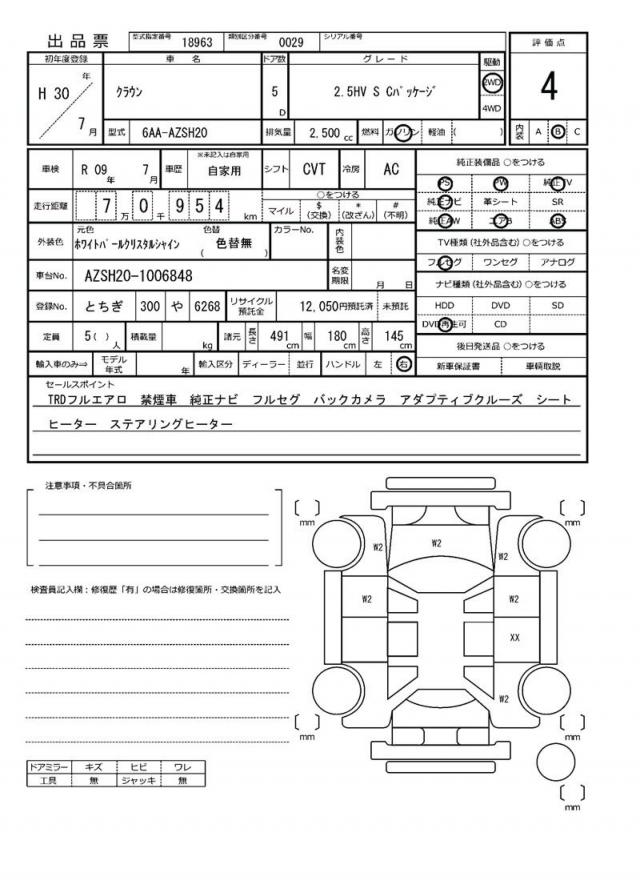 出品票 型式指定番号 18963 類別区分番号 0029 シリアル番号
評価点
4
初年度登録 車名 ドア数 グレード 駆動
H 30 年 7 月 クラウン 5 D 2.5HV S Cパッケージ 2WD 4WD
型式 6AA-AZSH20 排気量 2,500 cc 燃料 ガソリン 軽油 ( )
内装 A B C
車検 R 09 年 7 月 車歴 ※未記入は自家用 自家用 シフト CVT 冷房 AC
走行距離 7 万 0 千 9 5 4 km ○をつける マイル $ (交換) * (改ざん) # (不明)
外装色 元色 ホワイトパールクリスタルシャイン 色替 ( 色替無 ) カラーNo. 内装色
車台No. AZSH20-1006848 名変期限 月 日
登録No. とちぎ 300 や 6268 リサイクル預託金 12,050円預託済 未預託
定員 5( ) 人 積載量 kg 諸元 長さ 491 cm 幅 180 cm 高さ 145 cm
輸入車のみ⇒ モデル年式 年 輸入区分 ディーラー 並行 ハンドル 左 右
純正装備品 ○をつける
PS PW 純正TV
純正ナビ 革シート SR
純正AW エアB ABS
TV種類 (社外品含む) ○をつける
フルセグ ワンセグ アナログ
ナビ種類 (社外品含む) ○をつける
HDD DVD SD
DVD再生可 CD
後日発送品 ○をつける
新車保証書 車輌取説
セールスポイント
TRDフルエアロ 禁煙車 純正ナビ フルセグ バックカメラ アダプティブクルーズ シート
ヒーター ステアリングヒーター
注意事項・不具合箇所
検査員記入欄:修復歴「有」の場合は修復箇所・交換箇所を記入
ドアミラー キズ ヒビ ワレ
工具 無 ジャッキ 無
[ ] mm [ ] mm
W2 W2 W2
W2 W2
XX
W2
[ ] mm [ ] mm
[ ] mm